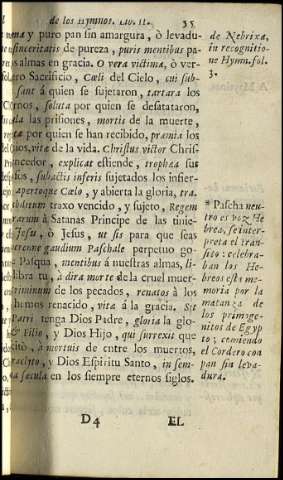 de los Hymnos. Lib. II.
35
y puro pan sin amargura, ò levadu-
sinceritatis de pureza, puris mentibus pa-
almas en gracia. O vera victima, ò ver-
Sacrificio, Cœli del Cielo, cui sub-
sant à quien se sujetaron, tartara los
soluta por quien se desataron,
las prisiones, mortis de la muerte,
por quien se han recibido, præmia los
vitæ de la vida. Christus victor Chris-
explicat estiende, trophæa sus
subactis inferis sujetados los infier-
apertoque Cœlo, y abierta la gloria, tra.
traxo vencido, y sujeto, Regem
à Satanas Principe de las tinie-
Jesu, ò Jesus, ut sis para que seas
gaudium Paschale perpetuo go-
Pasqua, mentibus à nuestras almas, li-
libra tu, à dira morte de la cruel muer-
criminum de los pecados, renatos à los
hemos renacido, vitæ à la gracia. Sit
Patri tenga Dios Padre, gloria la glo-
Filio, y Dios Hijo, qui surrexit que
à mortuis de entre los muertos,
y Dios Espiritu Santo, in sem-
sæcula en los siempre eternos siglos.
D4
EL
de Nebrixa,
in recognitio-
ne Hymn. fol.
3.
* Pascha neu-
tro es voz He
brea, se inter-
preta el tran-
sito: celebra-
ban los He-
breos esta me-
moria por la
matanza de
los primoge-
nitos de Egyp
to; comiendo
el Cordero con
pan sin leva-
dura.